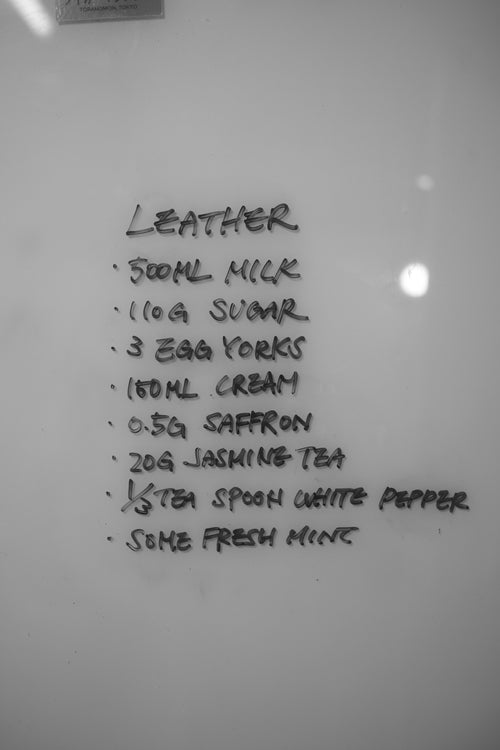 TORANOMON, TOKYO
LEATHER
· 500ML MILK
· 110G SUGAR
· 3 EGG YORKS
· 150ML CREAM
· 0.5G SAFFRON
· 20G JASMINE TEA
· 1/3 TEA SPOON WHITE PEPPER
· SOME FRESH MINT